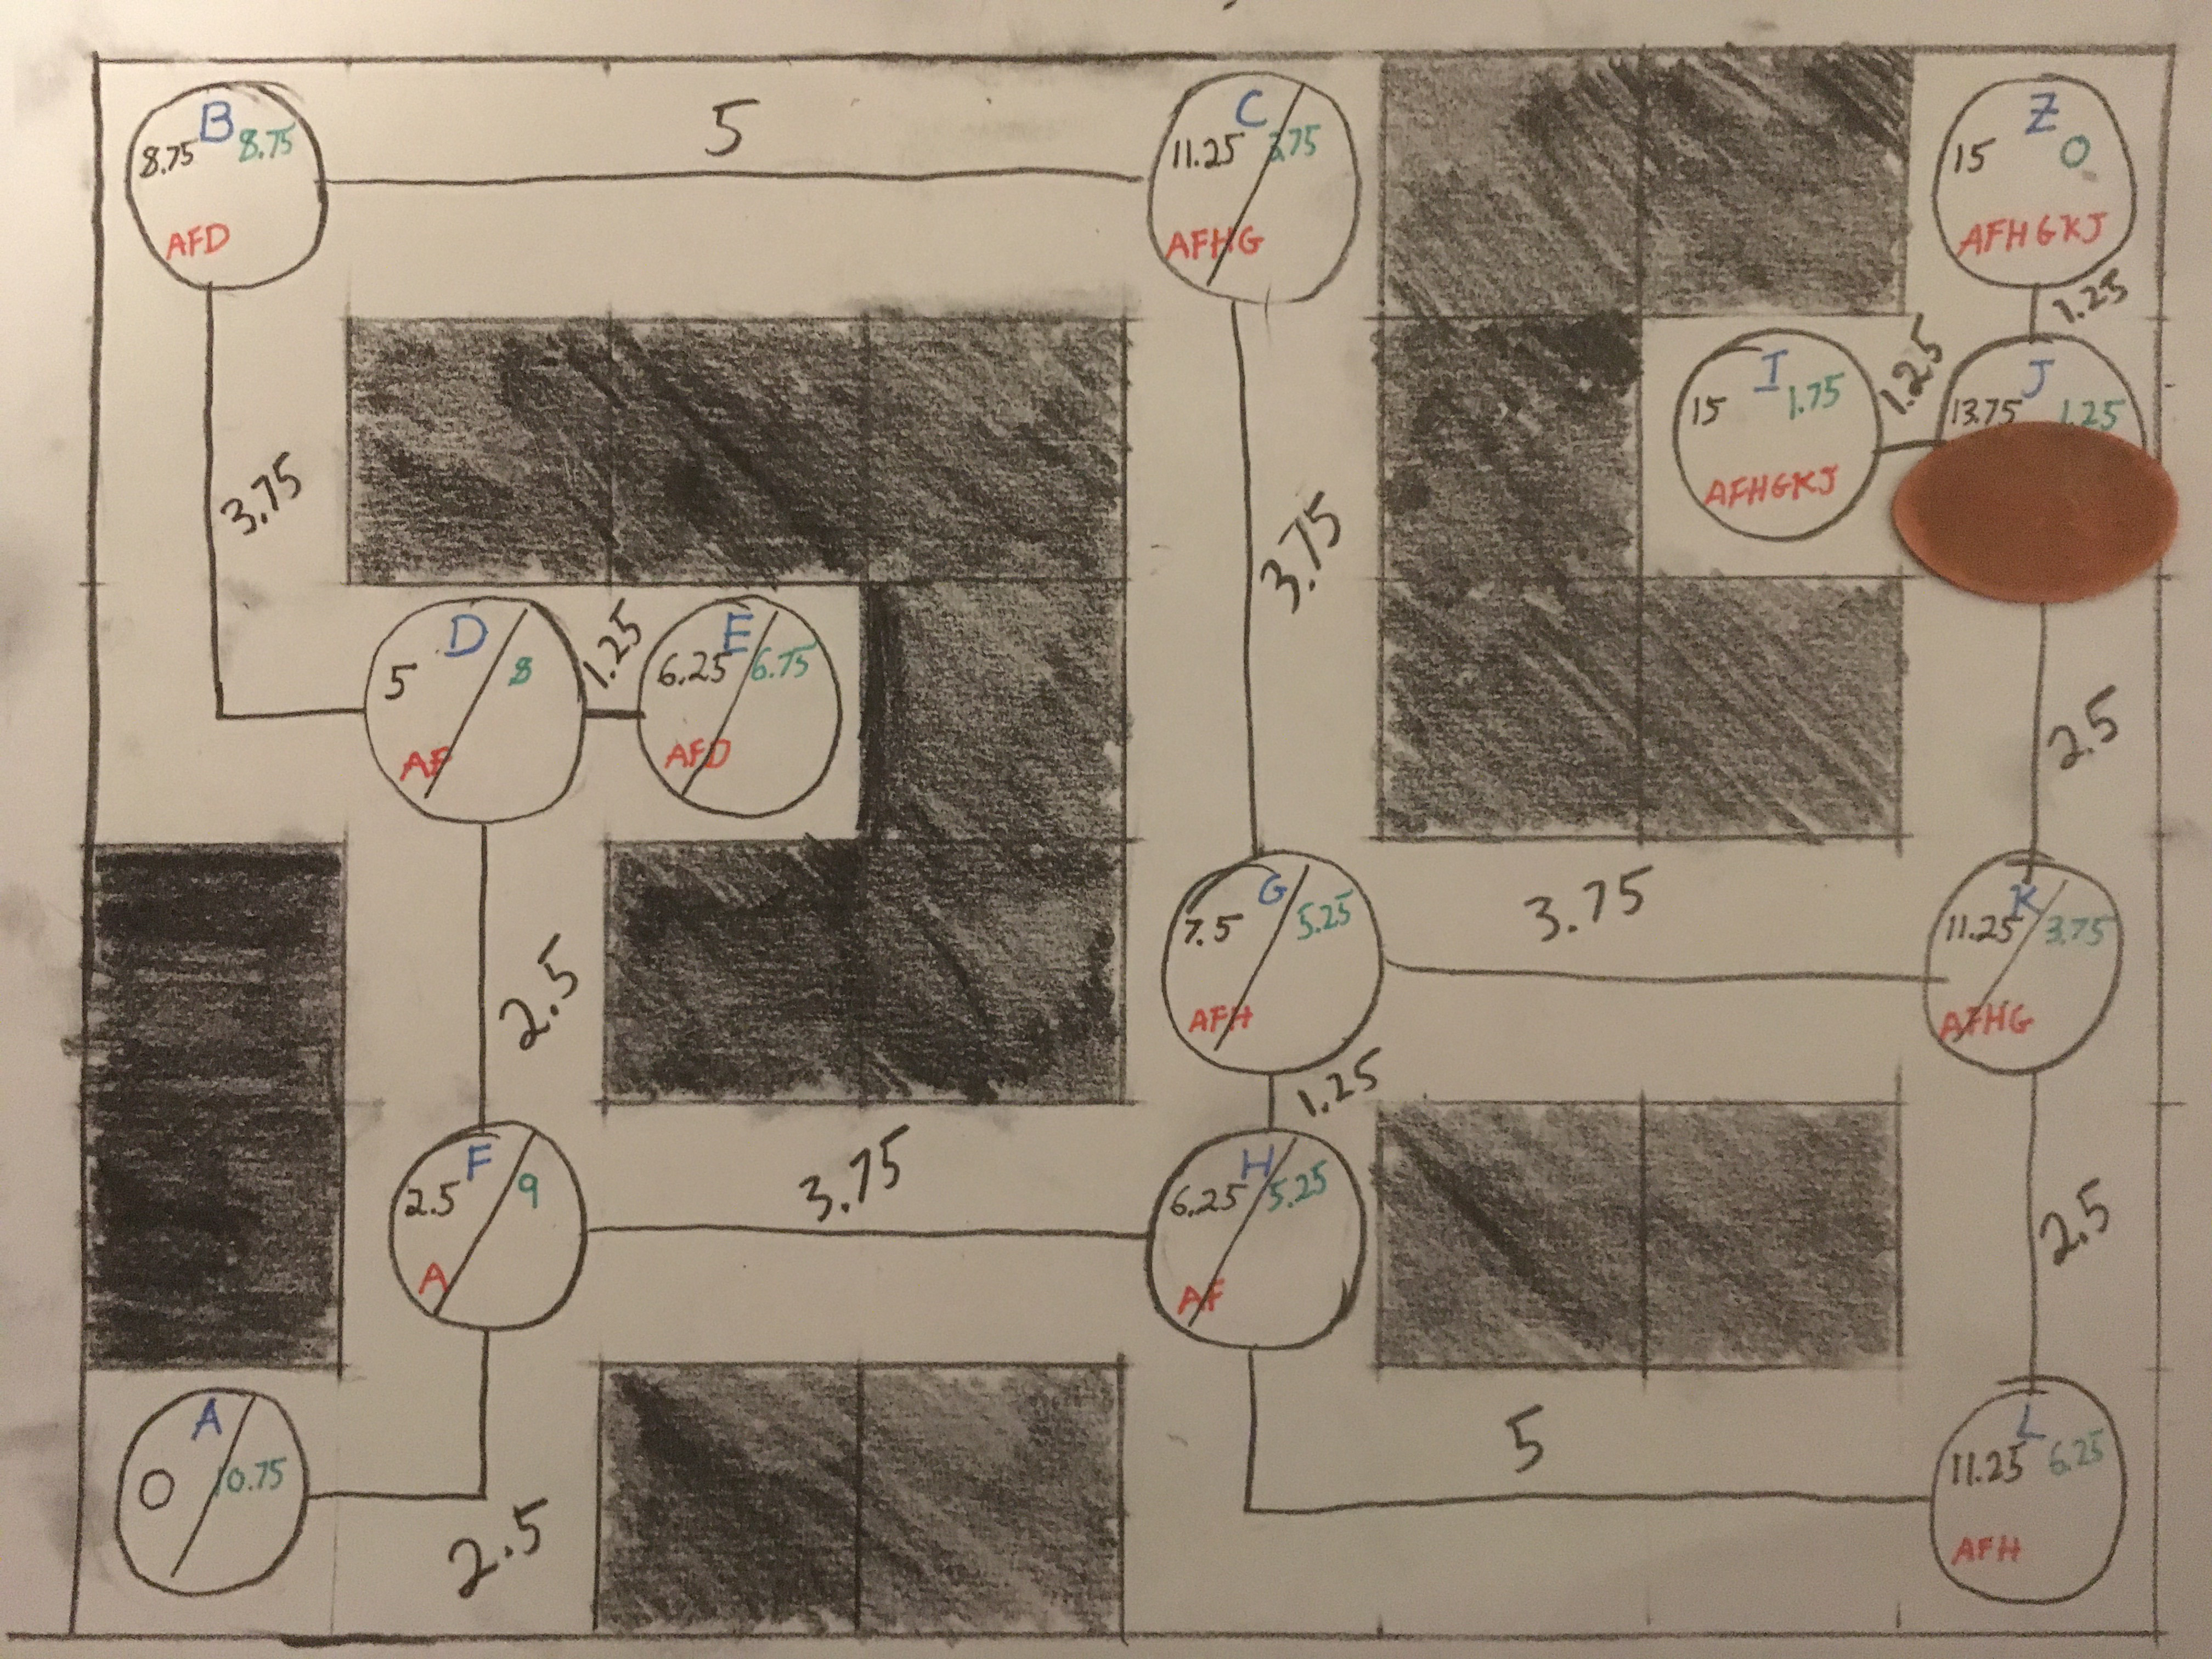 B
8.75 8.75
AFD
5
C
11.25 3.75
AFHG
Z
15 0
AFHGKJ
1.25
I
15 1.75
AFHGKJ
1.25
J
13.75 1.25
3.75
3.75
D
5 8
AF
1.25
E
6.25 6.75
AFD
2.5
G
7.5 5.25
AFH
3.75
K
11.25 3.75
AFHG
2.5
1.25
F
2.5 9
A
3.75
H
6.25 5.25
AF
2.5
A
0 10.75
2.5
5
L
11.25 6.25
AFH